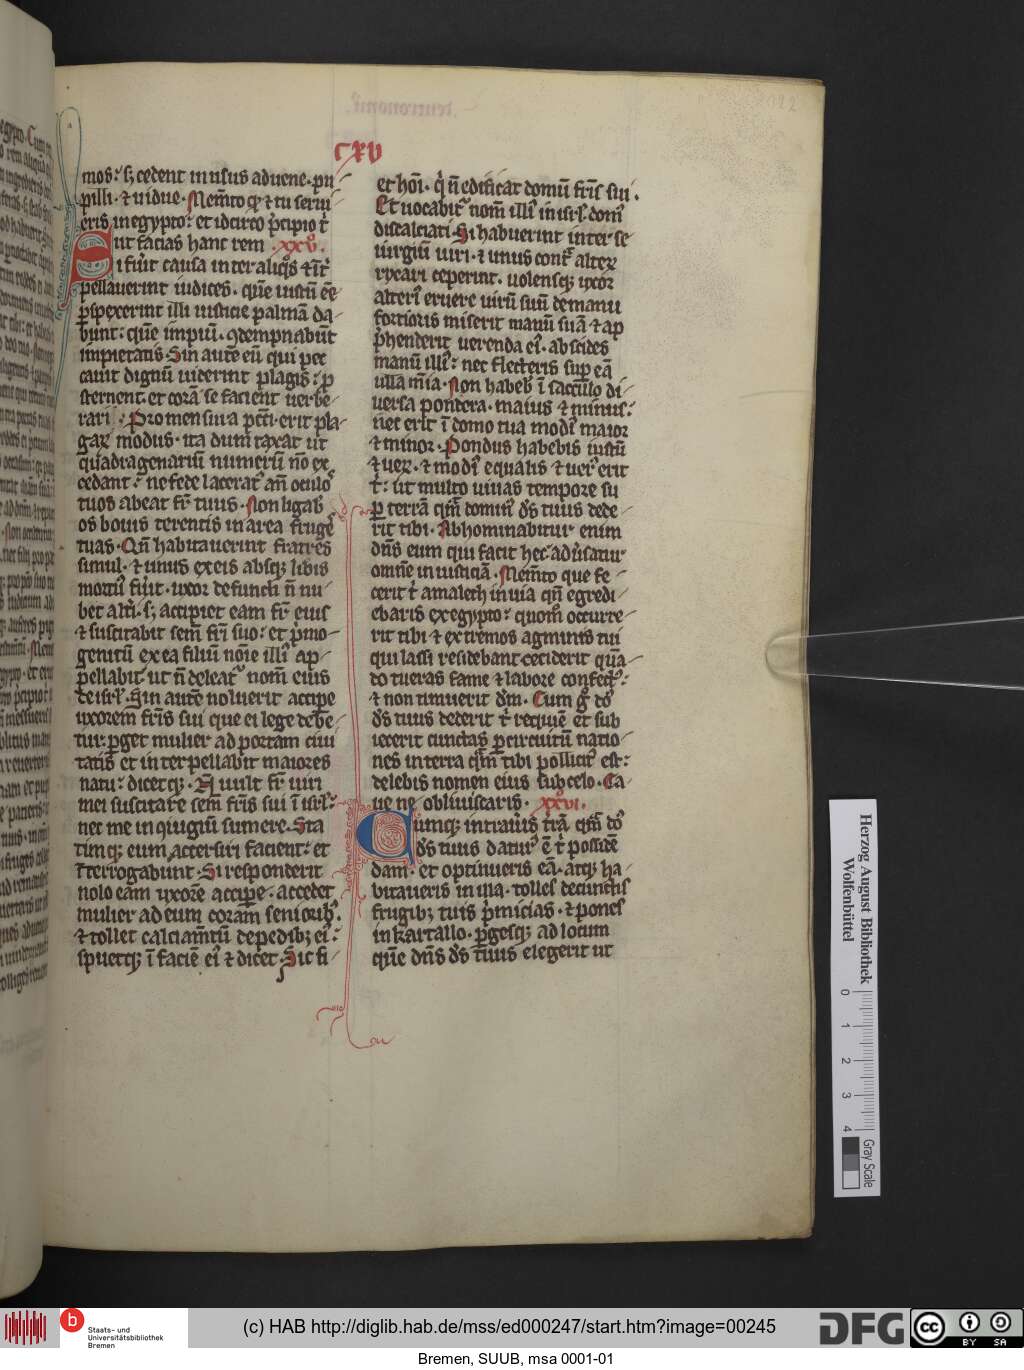 cxv
mos: s; cedent in usus aduene. pu
pilli. ⁊ uidue. Mem̃to qͥ ⁊ tu serui
eris in egypto: et idcirco p̃cipio t̉
ut facias hanc rem .xxv.
Si fūit causa inter aliq̊s ⁊ īt̉
pellauerint iudices. quē iustū eē
p̱spexerint illi iusticie palmā da
bunt: quē impiū. ꝯdempnabūt
impietatis. Sin autē eū qui pec
cauit dignū uiderint plagis: p̱
sternent. et corā se facient uerbe
rari. Pro mensura pcc̄i. erit pla
gaꝝ modus. ita dumtaxat ut
quadragenariū numerū nō ex
cedant: ne fede laceratꝰ an̄ oculoˢ
tuos abeat fr̄ tuus. Non ligabˢ
os bouis terentis in area frugeˢ
tuas. Qn̄ habitauerint fratres
simul. ⁊ unus ex eis absq; libis
mortuꝰ fūit. uxor defuncti n̄ nu
bet alt̉i. s; accipiet eam fr̄ eius
⁊ suscitabit sem̄ fr̄i suo: et p̃mo
genitū ex ea filiū noīe illiꝰ ap
pellabit ut n̄ deleatꝰ nom̄ eius
de isrl̄. Sin autē noluerit accipe
uxorem fr̄is sui que ei lege debe
tur. p̱get mulier ad portam ciui
tatis et interpellabit maiores
natu: dicetq;. N̄ uult fr̄ uiri
mei suscitare sem̄ fr̄is sui ī isrl̄:
nec me in ꝯiugiū sumere. Sta
timq; eum accersiri facient: et
īterrogabunt. Si responderit
nolo eam uxorē accipe. accedet
mulier ad eum coram seniorib;.
⁊ tollet calciam̄tū de pedib; eiꝰ:
spuetq; ī faciē eiꝰ ⁊ dicet. Sic fi
et hoī. qͥ n̄ edificat domū fr̄is sui.
Et uocabitꝰ nom̄ illiꝰ in isrl̄. domꝰ
discalciati. Si habuerint inter se
iurgiū uiri. ⁊ unus cont̃ alteꝝ
ryxari ceperint. uolensq; uxor
alteriꝰ eruere uirū suū de manu
fortioris miserit manū suā ⁊ ap
p̃henderit uerenda eiꝰ. abscides
manū illiꝰ: nec flecteris sup̱ eā
ulla mīa. Non habebˢ ī sacculo di
uersa pondera. maius ⁊ minus:
nec erit ī domo tua modiꝰ maior
⁊ minor. Pondus habebis iustū
⁊ ueꝝ. ⁊ modiꝰ equalis ⁊ ueꝰ erit
t̉: ut multo uiuas tempore su
p̱ terrā qm̄ dominꝰ ds̄ tuus dede
rit tibi. Abhominabitur enim
dn̄s eum qui facit hec. aduˢatur
omnē iniusticiā. Mem̃to que fe
cerit t̉ amalech in uia qn̄ egredi
ebaris ex egypto: quom̊ occurre
rit tibi ⁊ extremos agminis tui
qui lassi residebant ceciderit quā
do tu eras fame ⁊ labore confectꝰ:
⁊ non timuerit dm̄. Cum gͦ dō
ds̄ tuus dederit t̉ requiē et sub
iecerit cunctas p̱ circuitū natio
nes in terra qm̄ tibi pollicitꝰ est:
delebis nomen eius sub celo. Ca
ue ne obliuiscaris. xxvi.
Cumq; intrauˢis t̃rā qm̄ dō
ds̄ tuus daturꝰ ē t̉ possidē
dam. et optinueris eā. atq; ha
bitaueris in illa. tolles de cunctis
frugib; tuis p̃micias. ⁊ pones
in kartallo. p̱gesq; ad locum
quē dn̄s ds̄ tuus elegerit ut
Herzog August Bibliothek
Wolfenbüttel
0 1 2 3 4
Gray Scale
Staats- und
Universitätsbibliothek
Bremen
(c) HAB http://diglib.hab.de/mss/ed000247/start.htm?image=00245
DFG
cc BY SA
Bremen, SUUB, msa 0001-01